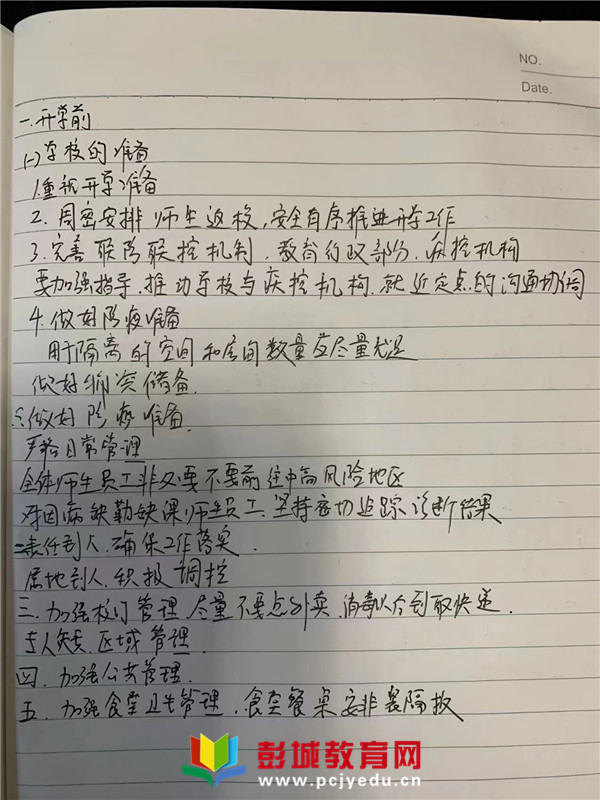 NO.
Date.
一.开学前
(一)学校的准备
1.重视开学准备
2.周密安排师生返校,安全有序推进开学工作
3.完善联防联控机制.教育行政部份.疾控机构
要加强指导.推动学校与疾控机构.就近定点的沟通协同
4.做好防疫准备
用于隔离的空间和房间数量应尽量充足
做好物资储备.
做好防疫准备.
严格日常管理
全体师生员工非必要不要前往中高风险地区
对因病缺勤缺课师生员工.坚持密切追踪诊断结果
二责任到人.确保工作落实.
属地到人.积极调控
三.加强校门管理.尽量不要点外卖.消毒以后到取快递.
专人失责.区域管理.
四.加强公共管理.
五.加强食堂卫生管理.食堂餐桌安排装隔板
彭城教育网
www.pcjyedu.cn